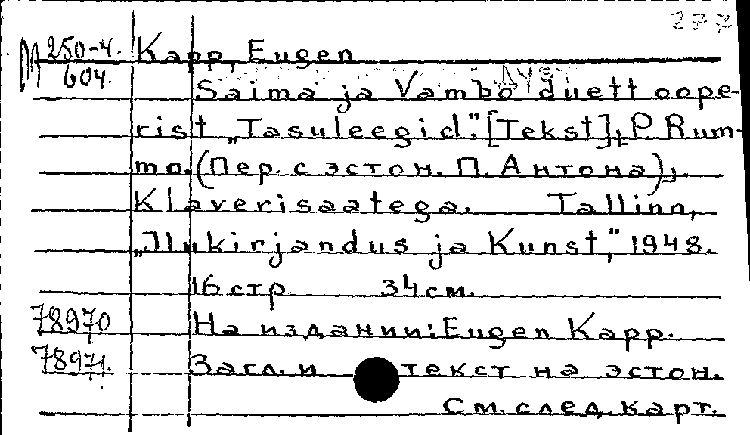 277
М 250-4. Kapp, Eugen
604.
Saima ja Vambo duett oope-
rist „Tasuleegid". [Tekst], P. Rum-
mo. (Пер. с эстон. П. Антона),
Klaverisaatega. Tallinn,
„Ilukirjandus ja Kunst," 1948.
16 стр 34 см.
78970 На издании: Eugen Kapp.
78971. Загл. и текст на эстон.
См. след. карт.